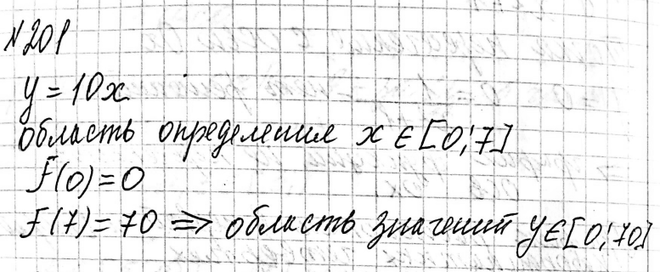 №201
y = 10x
область определения x ∈ [0;7]
f(0) = 0
f(7) = 70 ⇒ область значений y ∈ [0;70]